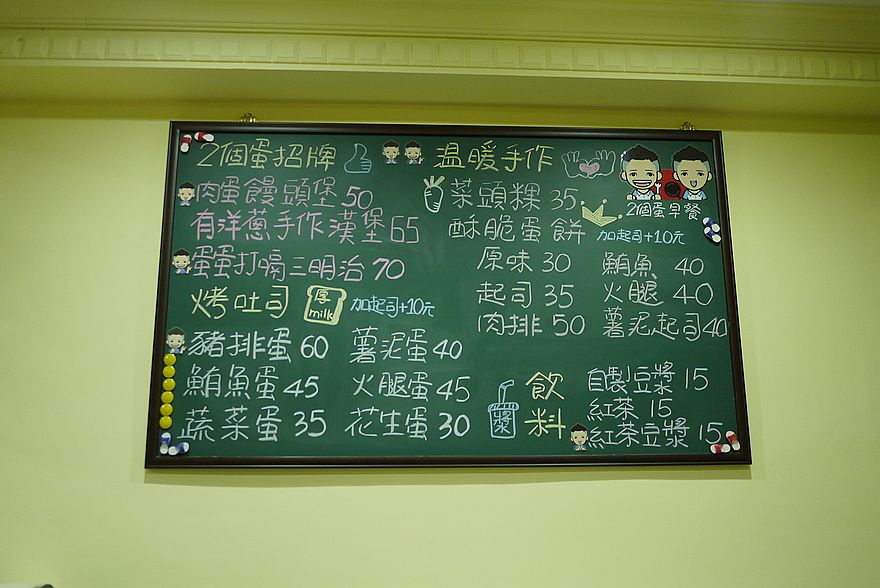 2個蛋招牌
肉蛋饅頭堡 50
有洋蔥手作漢堡 65
蛋蛋打嗝三明治 70
烤吐司 厚milk 加起司+10元
豬排蛋 60 薯泥蛋 40
鮪魚蛋 45 火腿蛋 45
蔬菜蛋 35 花生蛋 30
溫暖手作
菜頭粿 35
酥脆蛋餅 加起司+10元
原味 30 鮪魚 40
起司 35 火腿 40
肉排 50 薯泥起司 40
2個蛋早餐
漿 飲料
自製豆漿 15
紅茶 15
紅茶豆漿 15